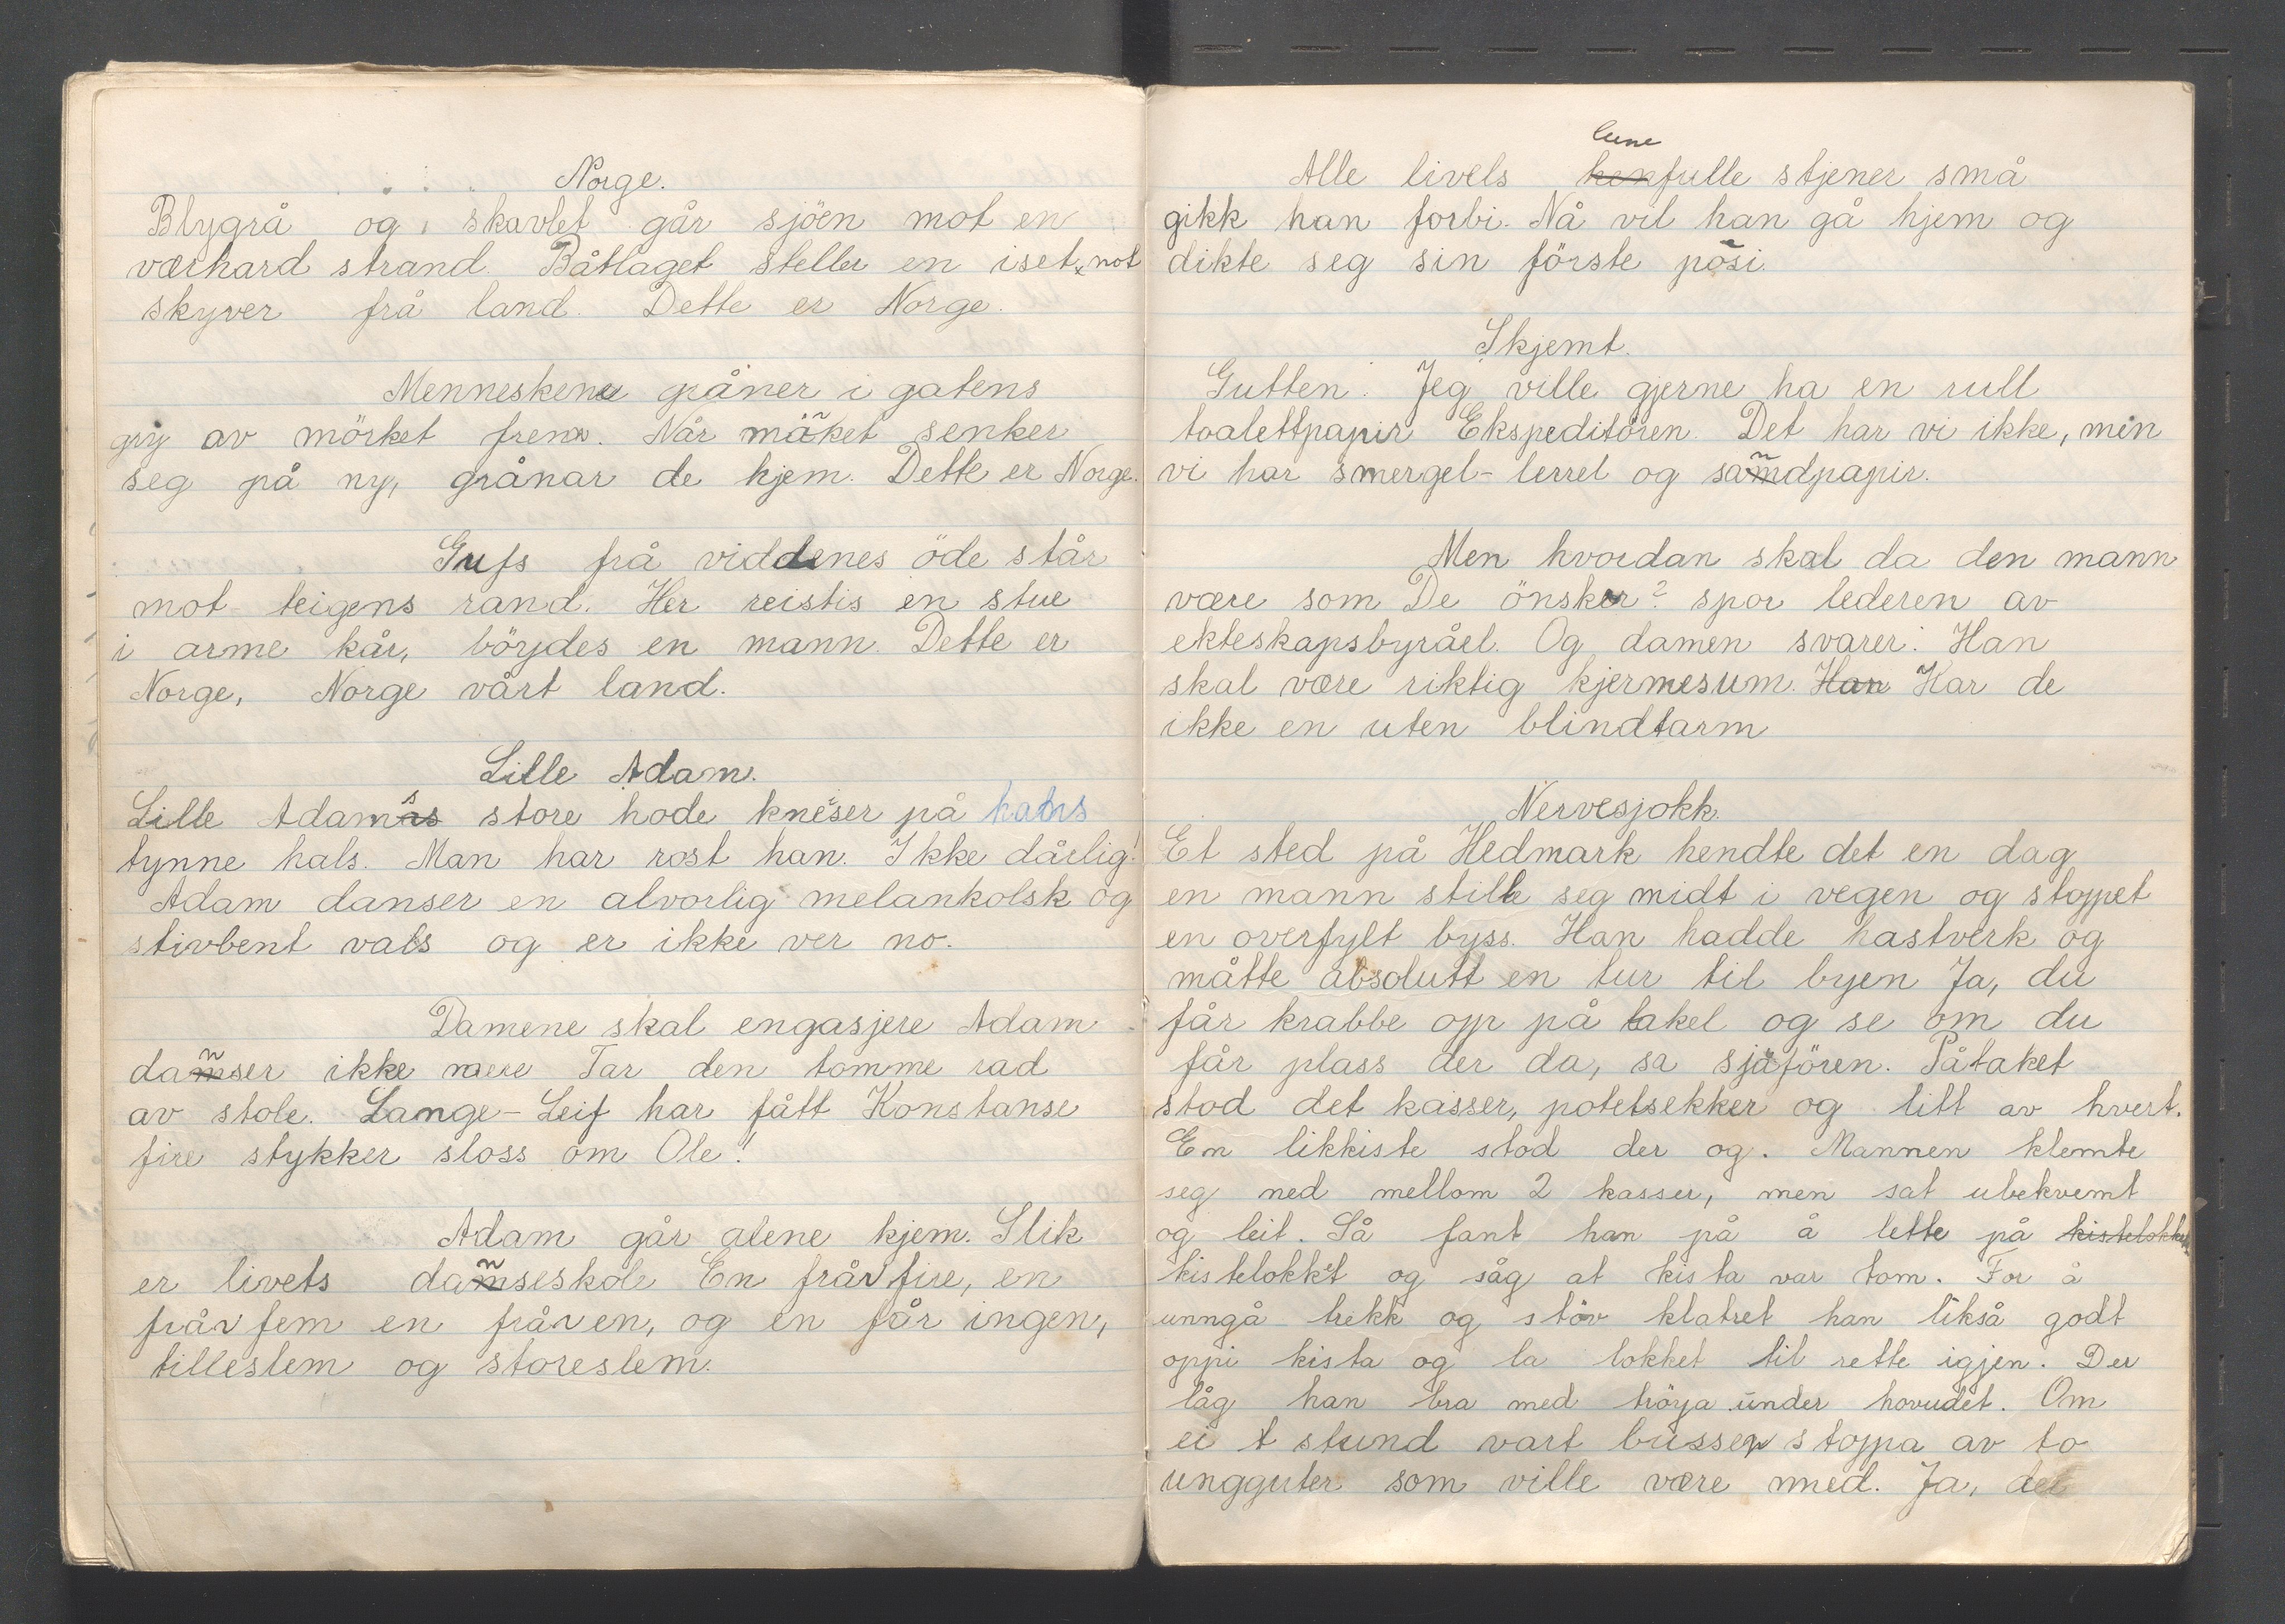 Norge.
Blygrå og skavlet går sjöen mot en
værhard strand. Båtlaget steller en iset not
skyver frå land. Dette er Norge.
Menneskene gråner i gatens
gry av mörket frem. Når mörket senker
seg på ny, grånar de hjem. Dette er Norge.
Gufs frå viddenes öde står
mot teigens rand. Her reistis en stue
i arme kår, böydes en mann. Dette er
Norge, Norge vårt land.
Lille Adam.
Lille Adams store hode kneiser på hans
tynne hals. Man har rost han. Ikke dårlig!
Adam danser en alvorlig melankolsk og
stivbent vals og er ikke ver no.
Damene skal engasjere Adam
danser ikke mere Tar den tomme rad
av stole. Lange-Leif har fått Konstanse
fire stykker sloss om Ole!
Adam går alene hjem. Slik
er livets danseskole En får fire, en
får fem en får en, og en får ingen,
lilleslem og storeslem.
Alle livets lunefulle stjener små
gikk han forbi. Nå vil han gå hjem og
dikte seg sin förste pösi.
Skjemt.
Gutten: Jeg ville gjerne ha en rull
toalettpapir Ekspeditören. Det har vi ikke, men
vi har smergel-lerret og sandpapir.
Men hvordan skal da den mann
være som De önsker? spor lederen av
ekteskapsbyrået. Og damen svarer: Han
skal være riktig hjermesum. Han Har de
ikke en uten blindtarm
Nervesjokk.
Et sted på Hedmark hendte det en dag
en mann stille seg midt i vegen og stoppet
en overfylt byss. Han hadde hastverk og
måtte absolutt en tur til byen Ja, du
får krabbe opp på taket og se om du
får plass der da, sa sjåfören. På taket
stod det kasser, potetsekker og litt av hvert.
En likkiste stod der og. Mannen klemte
seg ned mellom 2 kasser, men sat ubekvemt
og leit. Så fant han på å lette på kistelokket
kistelokket og såg at kista var tom. For å
unngå trekk og stöv klatret han likså godt
oppi kista og la lokket til rette igjen. Der
låg han bra med tröya under hovudet. Om
ei t stund vart bussen stoppa av to
ungguter som ville være med. Ja, det